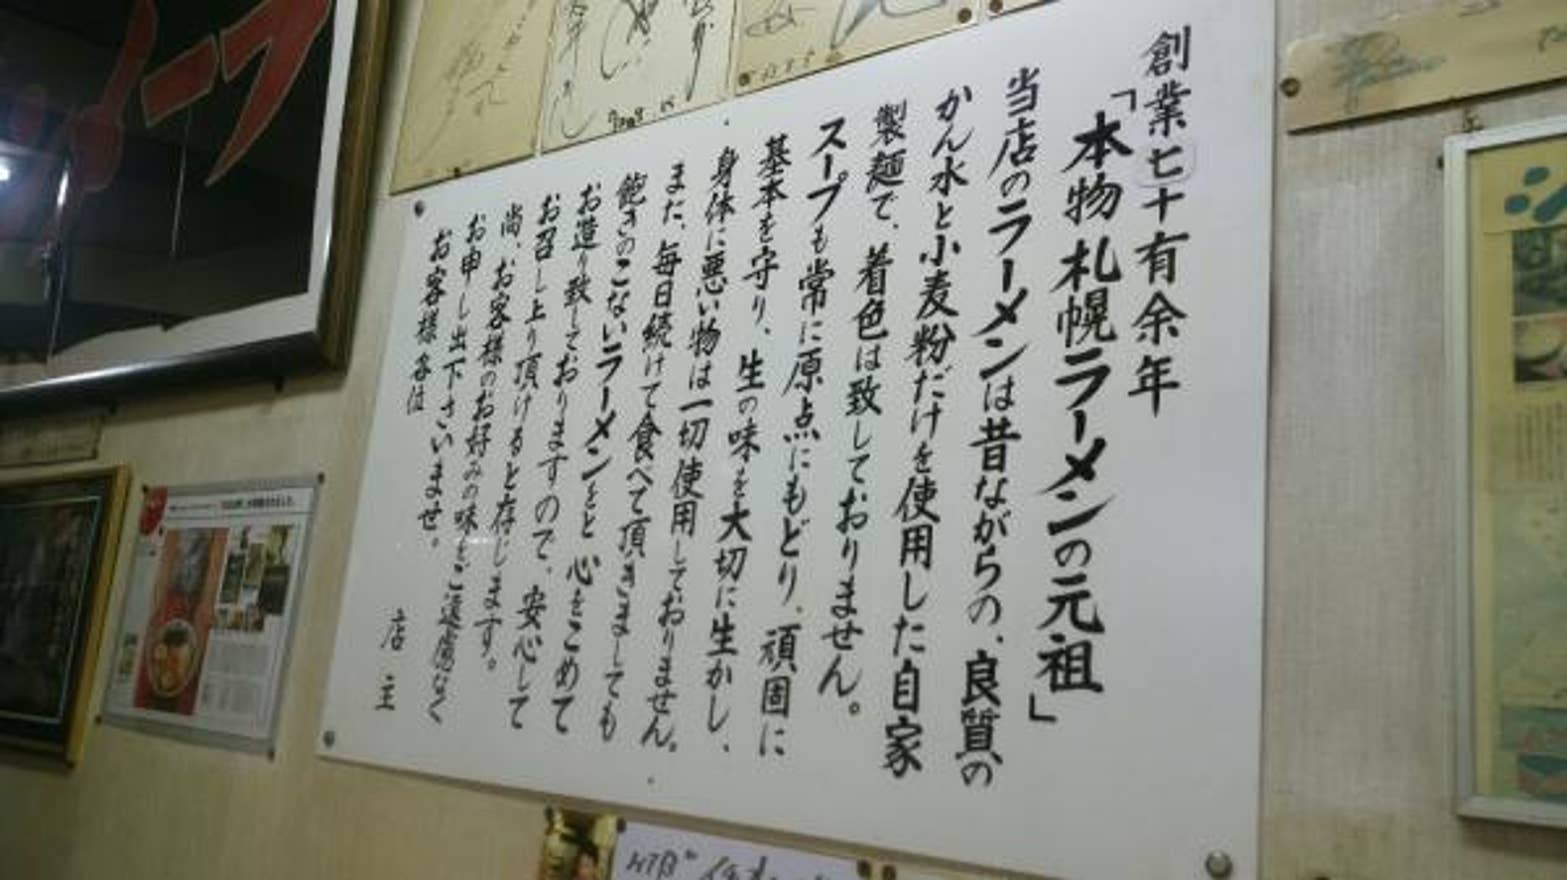 創業七十有余年
「本物札幌ラーメンの元祖」
当店のラーメンは昔ながらの、良質の
かん水と小麦粉だけを使用した自家
製麺で、着色は致しておりません。
スープも常に原点にもどり、頑固に
基本を守り、生の味を大切に生かし、
身体に悪い物は一切使用しておりません。
また、毎日続けて食べて頂きましても
飽きのこないラーメンをと心をこめて
お造り致しておりますので、安心して
お召し上り頂けると存じます。
尚、お客様のお好みの味をご遠慮なく
お申し出下さいませ。
お客様各位
店主